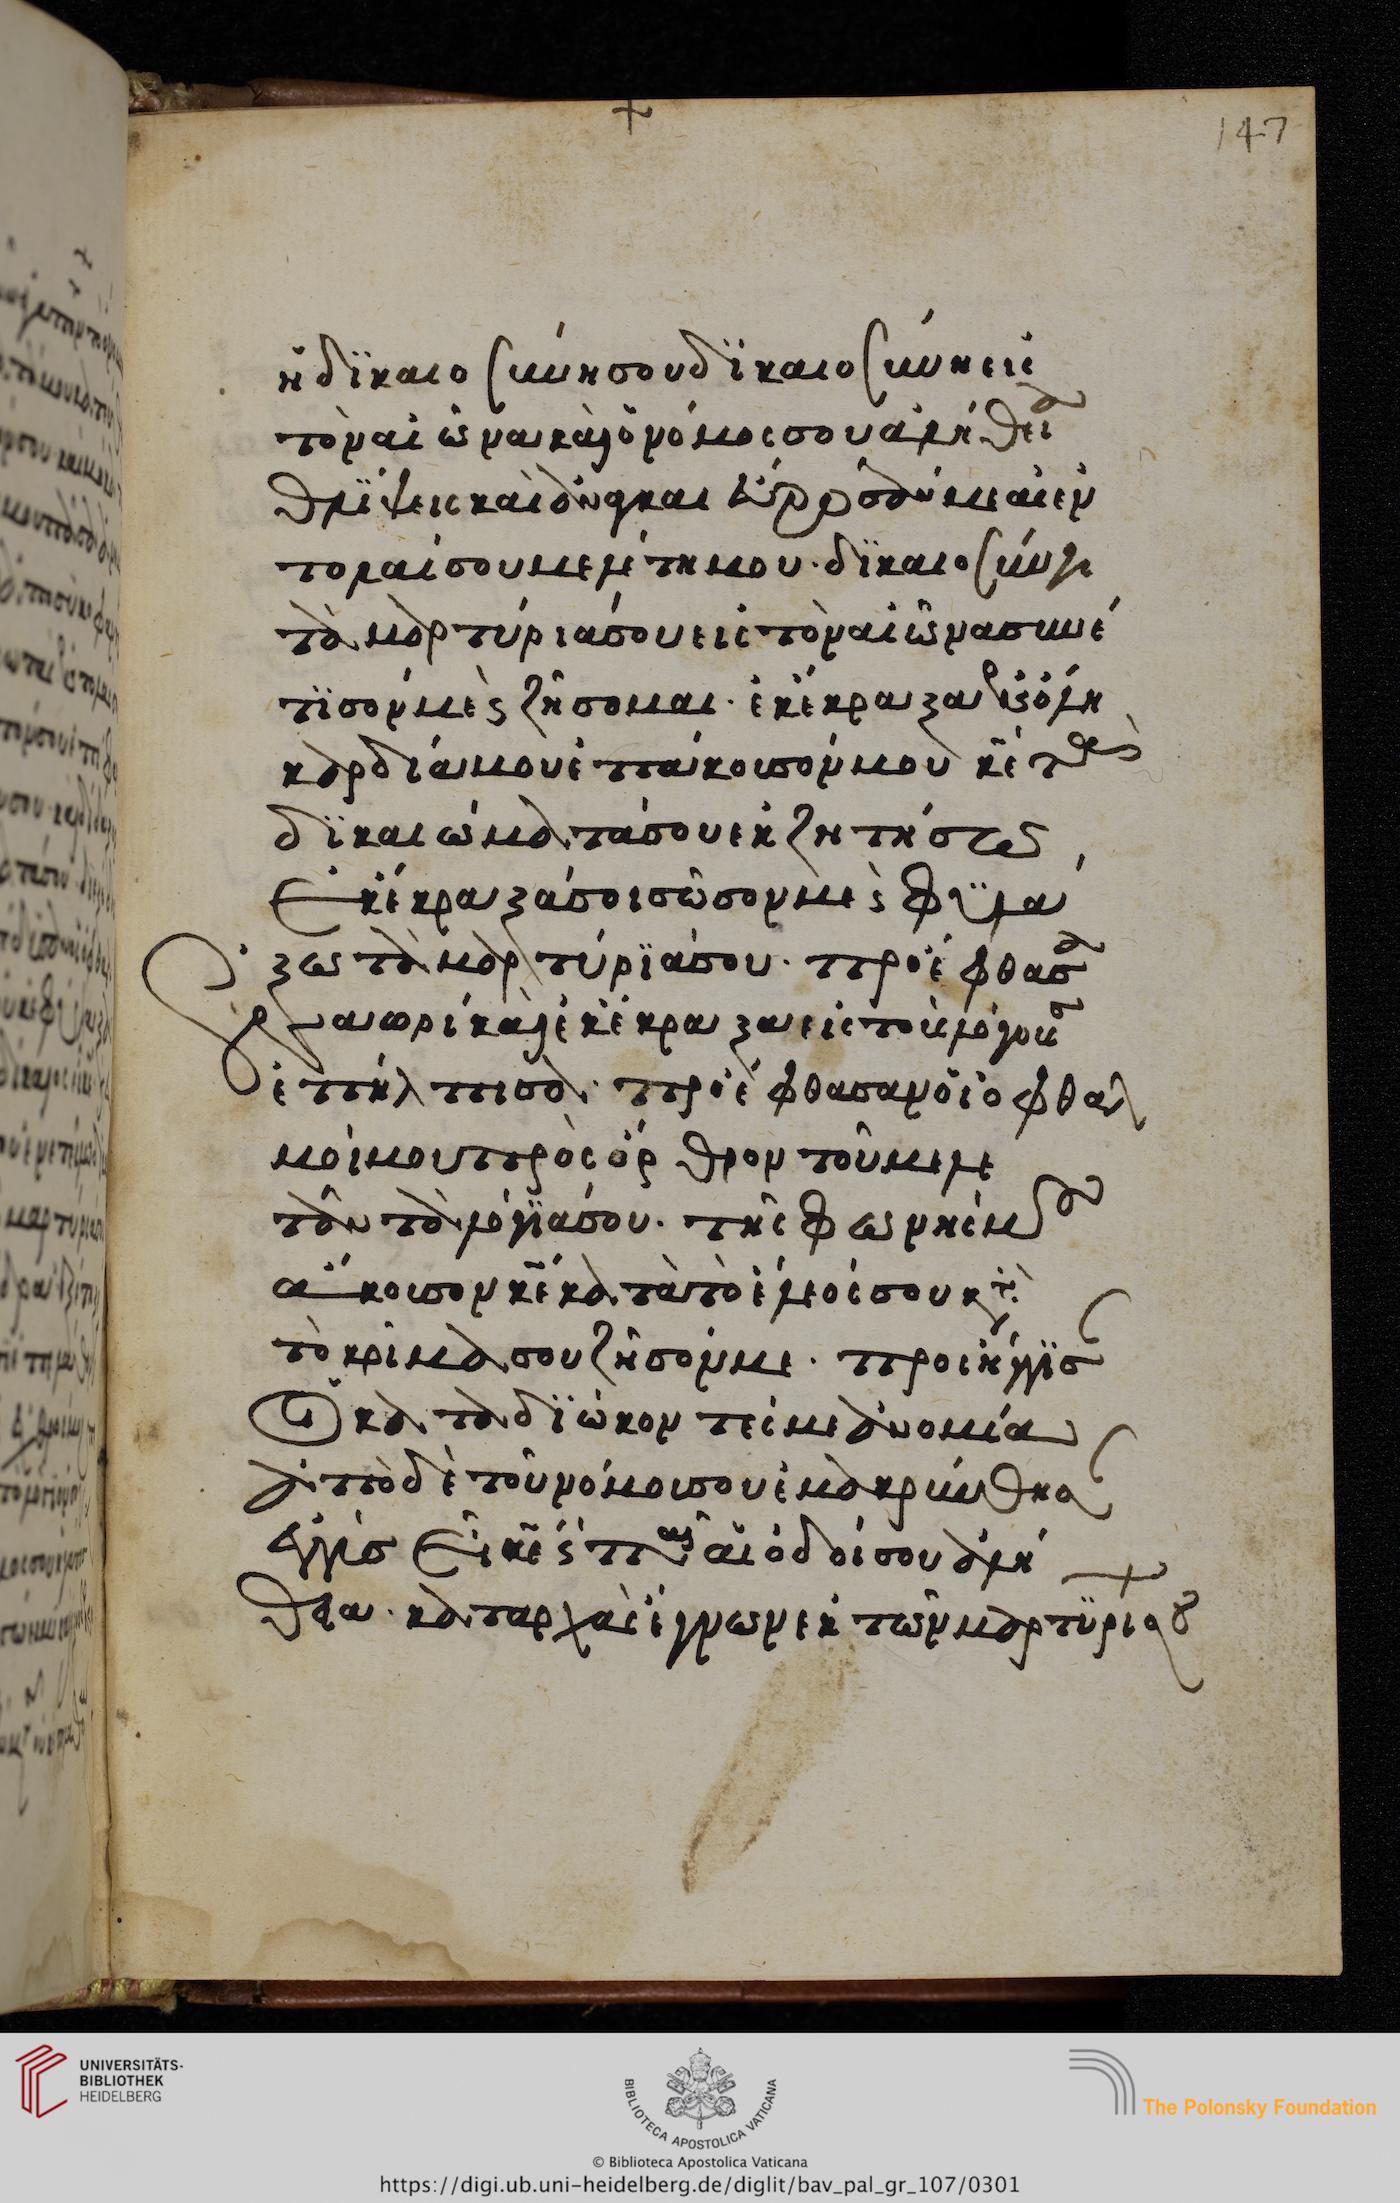 147
ἡ δϊκαιοσύνη σου δϊκαιοσύνη εἰς
τὸν αἰῶνα καὶ ὁ νόμος σου ἀλήθεια
θλίψεις καὶ ἀνάγκαι εὕρροσάν με αἱ ἐν
τολαί σου μελέτη μου · δϊκαιοσύνη
τὰ μαρτύριά σου εἰς τὸν αἰῶνα συνέ
τϊσόν με καὶ ζήσομαι · ἐκέκραξα ἐν ὅλη
καρδία μου ἐπάκουσόν μου κε τὰ
δϊκαιώματά σου ἐκζητήσω
Ἐκέκραξά σοι σῶσόν με καὶ φϋλά
ξω τὰ μαρτύρϊά σου · προέφθασα
ἐν ἀωρί καὶ ἐκέκραξα εἰς τοὺς λόγους
ἐπήλπισα · προέφθασαν οἱ ὀφθαλ
μοί μου πρὸς ὄρθρον τοῦ μελε
τᾶν τὰ λόγϊά σου · τῆς φωνῆς μου
ἄκουσον κε κατὰ τὸ ἔλεός σου κατὰ
τὸ κρῖμα σου ζῆσόν με · προσήγγϊσ
αν καταδϊώκοντές με ἀνομία
ἀπὸ δὲ τοῦ νόμου σου ἐμακρύνθησαν
ἐγγὺς εἶ κε καὶ πᾶσαι αἱ ὁδοί σου ἀλή
θεια · κατ' ἀρχὰς ἔγνων ἐκ τῶν μαρτϋρίων σου
UNIVERSITÄTS-
BIBLIOTHEK
HEIDELBERG
BIBLIOTECA APOSTOLICA VATICANA
The Polonsky Foundation
© Biblioteca Apostolica Vaticana
https://digi.ub.uni-heidelberg.de/diglit/bav_pal_gr_107/0301